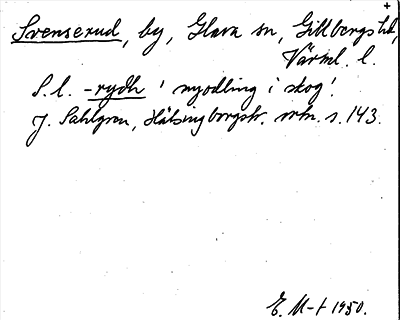 +
Svenserud, by, Glava sn, Gillbergs hd,
Värml. l.
S. l. -rydh 'nyodling i skog'.
J. Sahlgren, Hälsingborgstr. ortn. s. 143.
E. M-t 1950.